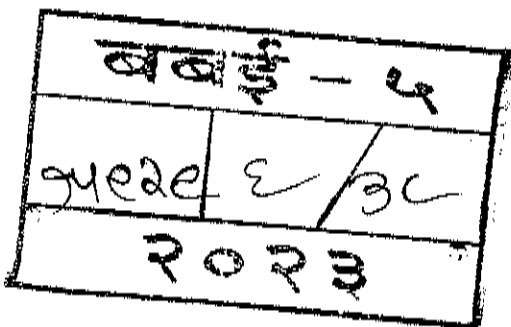 बबई - ५
१५९२९ ६ / ३८
२०२३